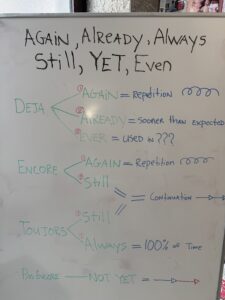 AGAIN, ALREADY, ALWAYS
Still, YET, Even
DEJA
① AGAIN = Repetition
② ALREADY = sooner than expected
③ EVER = used in ???
ENCORE
① AGAIN = Repetition
② Still
= Continuation
TOUJORS
① Still
② Always = 100% of Time
NOT YET =